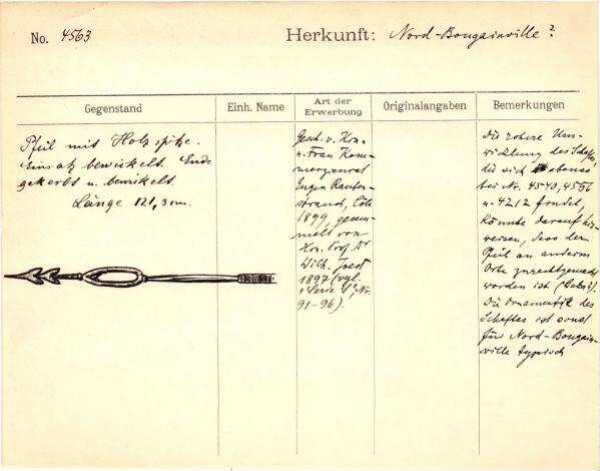 No. 4563
Herkunft: Nord-Bougainville?
Gegenstand
Einh. Name
Art der Erwerbung
Originalangaben
Bemerkungen
Pfeil mit Holzspitze.
Einsatz bewickelt. Ende
gekerbt u. bewickelt.
Länge 121,3 cm.
Gesch. v. Hrn.
u. Frau Kom-
merzienrat
Eugen Rauten-
strauch, Cöln
1899, gesam-
melt von
Hrn. Prof. Dr
Wilh. Joest
1897 (vgl.
No.
91-96).
Die rohere Um-
wicklung des Schaftes,
die sich ebenso
bei Nr. 4540, 4556
u. 4212 findet,
könnte darauf hin-
weisen, dass der
Pfeil an anderem
Orte zurechtgemacht
worden ist
Die Ornamentik des
Schaftes ist sonst
für Nord-Bougain-
ville typisch